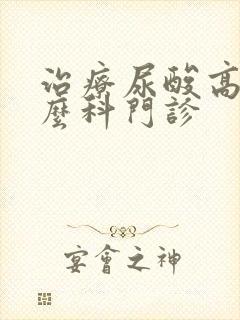 治療尿酸高
麼科門診
宴會之神